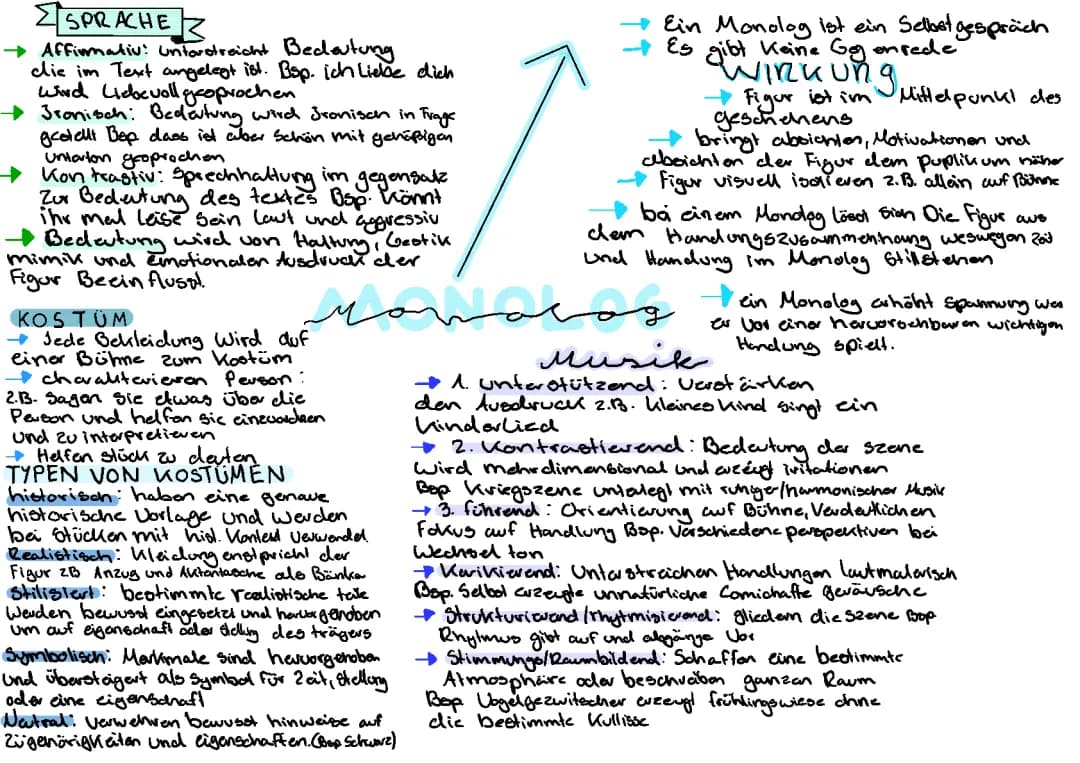 SPRACHE
→ Affirmativ: unterstreicht Bedeutung
die im Text angelegt ist. Bsp. ich Liebe dich
wird Liebevoll gesprochen
→ Ironisch: Bedeutung wird Ironisch in Frage
gestellt Bsp dass ist aber Schön mit gehäßigen
unterton gesprochen
→ Kontrastiv: Sprechhaltung im gegensatz
Zur Bedeutung des textes Bsp. Könnt
ihr mal Leise Sein laut und aggressiv
→ Bedeutung wird von Haltung, Gestik
mimik und Emotionalen Ausdruck der
Figur Beeinflusst.
→ Ein Monolog ist ein Selbstgespräch
→ Es gibt Keine Gegenrede
WIRKUNG
→ Figur ist im Mittelpunkt des
geschehens
→ bringt absichten, Motivationen und
Absichten der Figur dem puplikum näher
→ Figur visuell isolieren z.B. allein auf Bühne
→ bei einem Monolog löst sich Die Figur aus
dem Handlungszusammenhang weswegen Zeit
und Handlung im Monolog Stillstehen
→ ein Monolog erhöht Spannung wenn
er vor einer hervorsehbaren wichtigen
Handlung spielt.
MONOLOG
Monolog
KOSTÜM
→ Jede Bekleidung Wird auf
einer Bühne zum Kostüm
→ charakterieren Person:
z.B. Sagen Sie etwas über die
Person und helfen Sie einzuordnen
und zu interpretieren
→ Helfen Stück zu deuten
TYPEN VON KOSTÜMEN
historisch: haben eine genaue
historische Vorlage und werden
bei Stücken mit hist. Kontext verwendet
Realistisch: Kleidung enstpricht der
Figur ZB Anzug und Aktentasche als Bänker
Stilisiert: bestimmte realistische teile
werden bewusst eingesetzt und hervorgehoben
um auf eigenschaft oder Stellung des trägers
Symbolisch: Merkmale sind hervorgehoben
und übersteigert als Symbol für Zeit, Stellung
oder eine eigenschaft
Neutral: verwehren bewusst hinweise auf
Zugehörigkeiten und eigenschaften. (Bsp Schwarz)
Musik
→ 1. unterstützend: Verstärken
den Ausdruck z.B. kleines Kind singt ein
Kinderlied
→ 2. Kontrastierend: Bedeutung der Szene
wird mehrdimensional und erzeugt irritationen
Bsp Kriegszene unterlegt mit ruhiger/harmonischer Musik
→ 3. führend: Orientierung auf Bühne, Verdeutlichen
Fokus auf Handlung Bsp. Verschiedene perspektiven bei
Wechsel ton
→ Karikierend: Unterstreichen Handlungen lautmalerisch
Bsp. Selbst erzeugte unnatürliche Comichafte geräusche
→ Strukturierend/rhytmisierend: gliedern die Szene Bsp
Rhytmus gibt auf und abgänge vor
→ Stimmungs/Raumbildend: Schaffen eine bestimmte
Atmosphäre oder beschreiben ganzen Raum
Bsp Vogelgezwitscher erzeugt frühlingswiese ohne
die bestimmte Kullisse